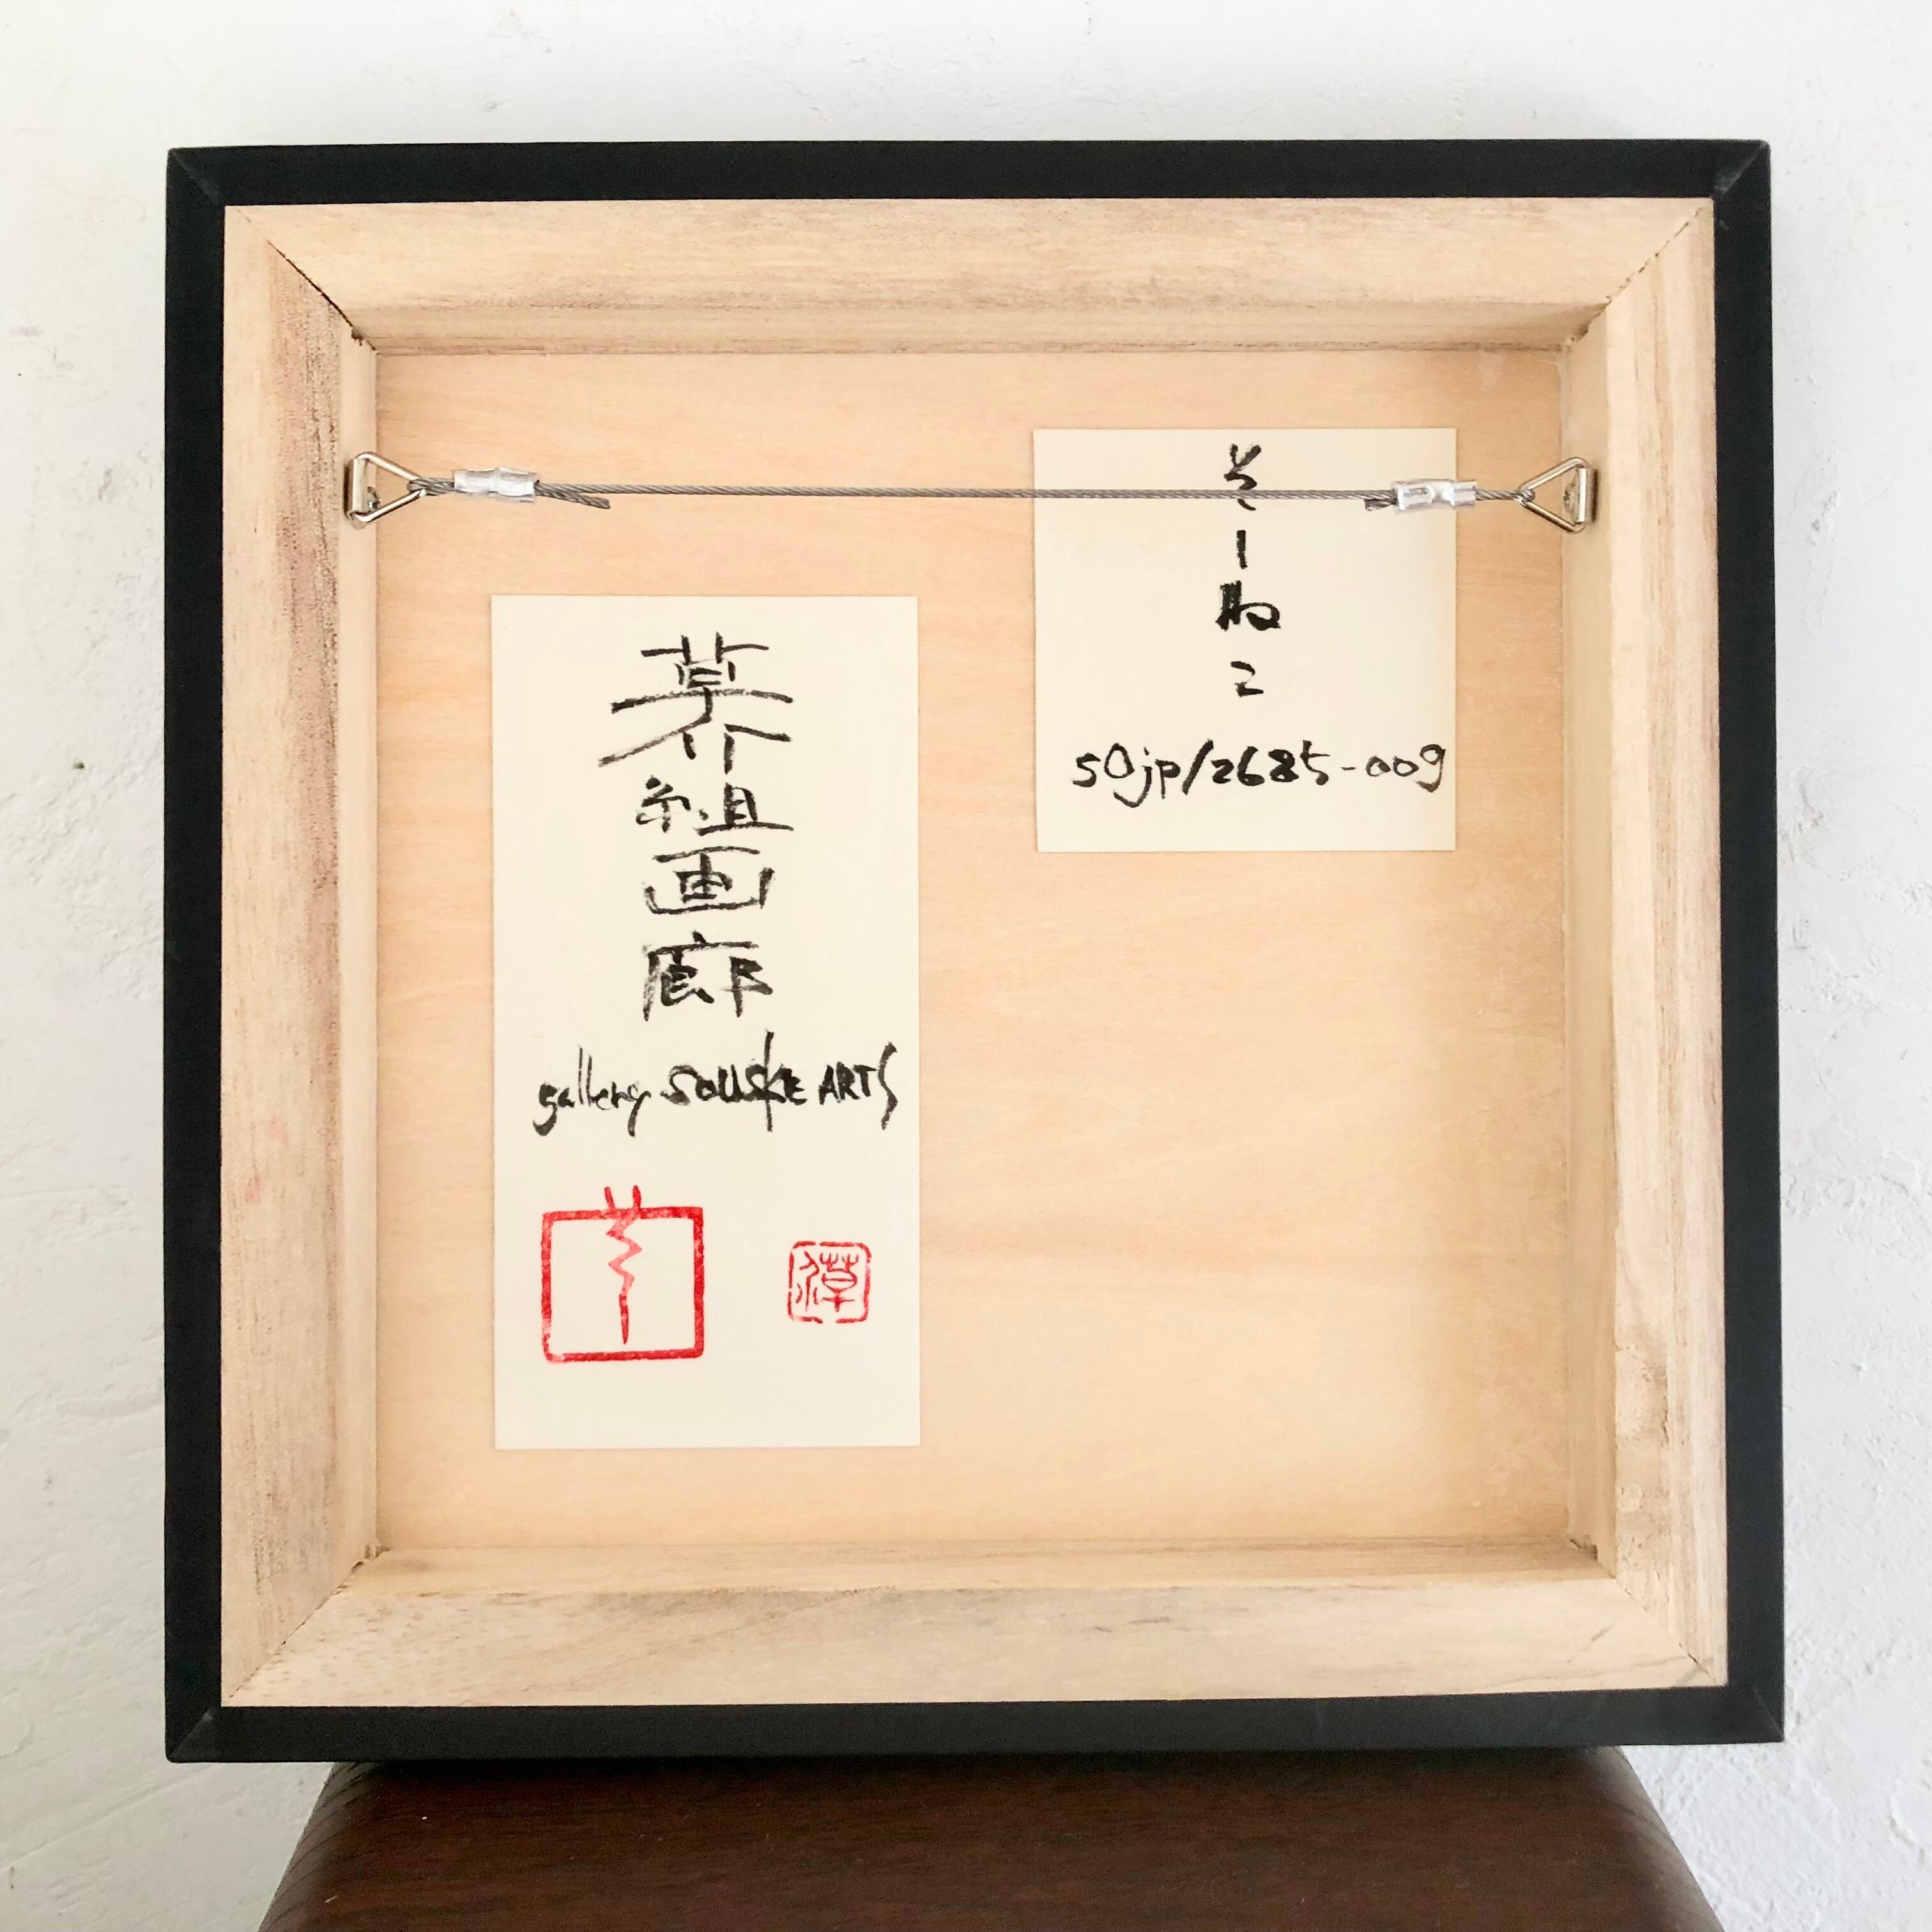 そーねこ
sOjp/2685-009
草介組画廊
gallery SOUSKE ARTS